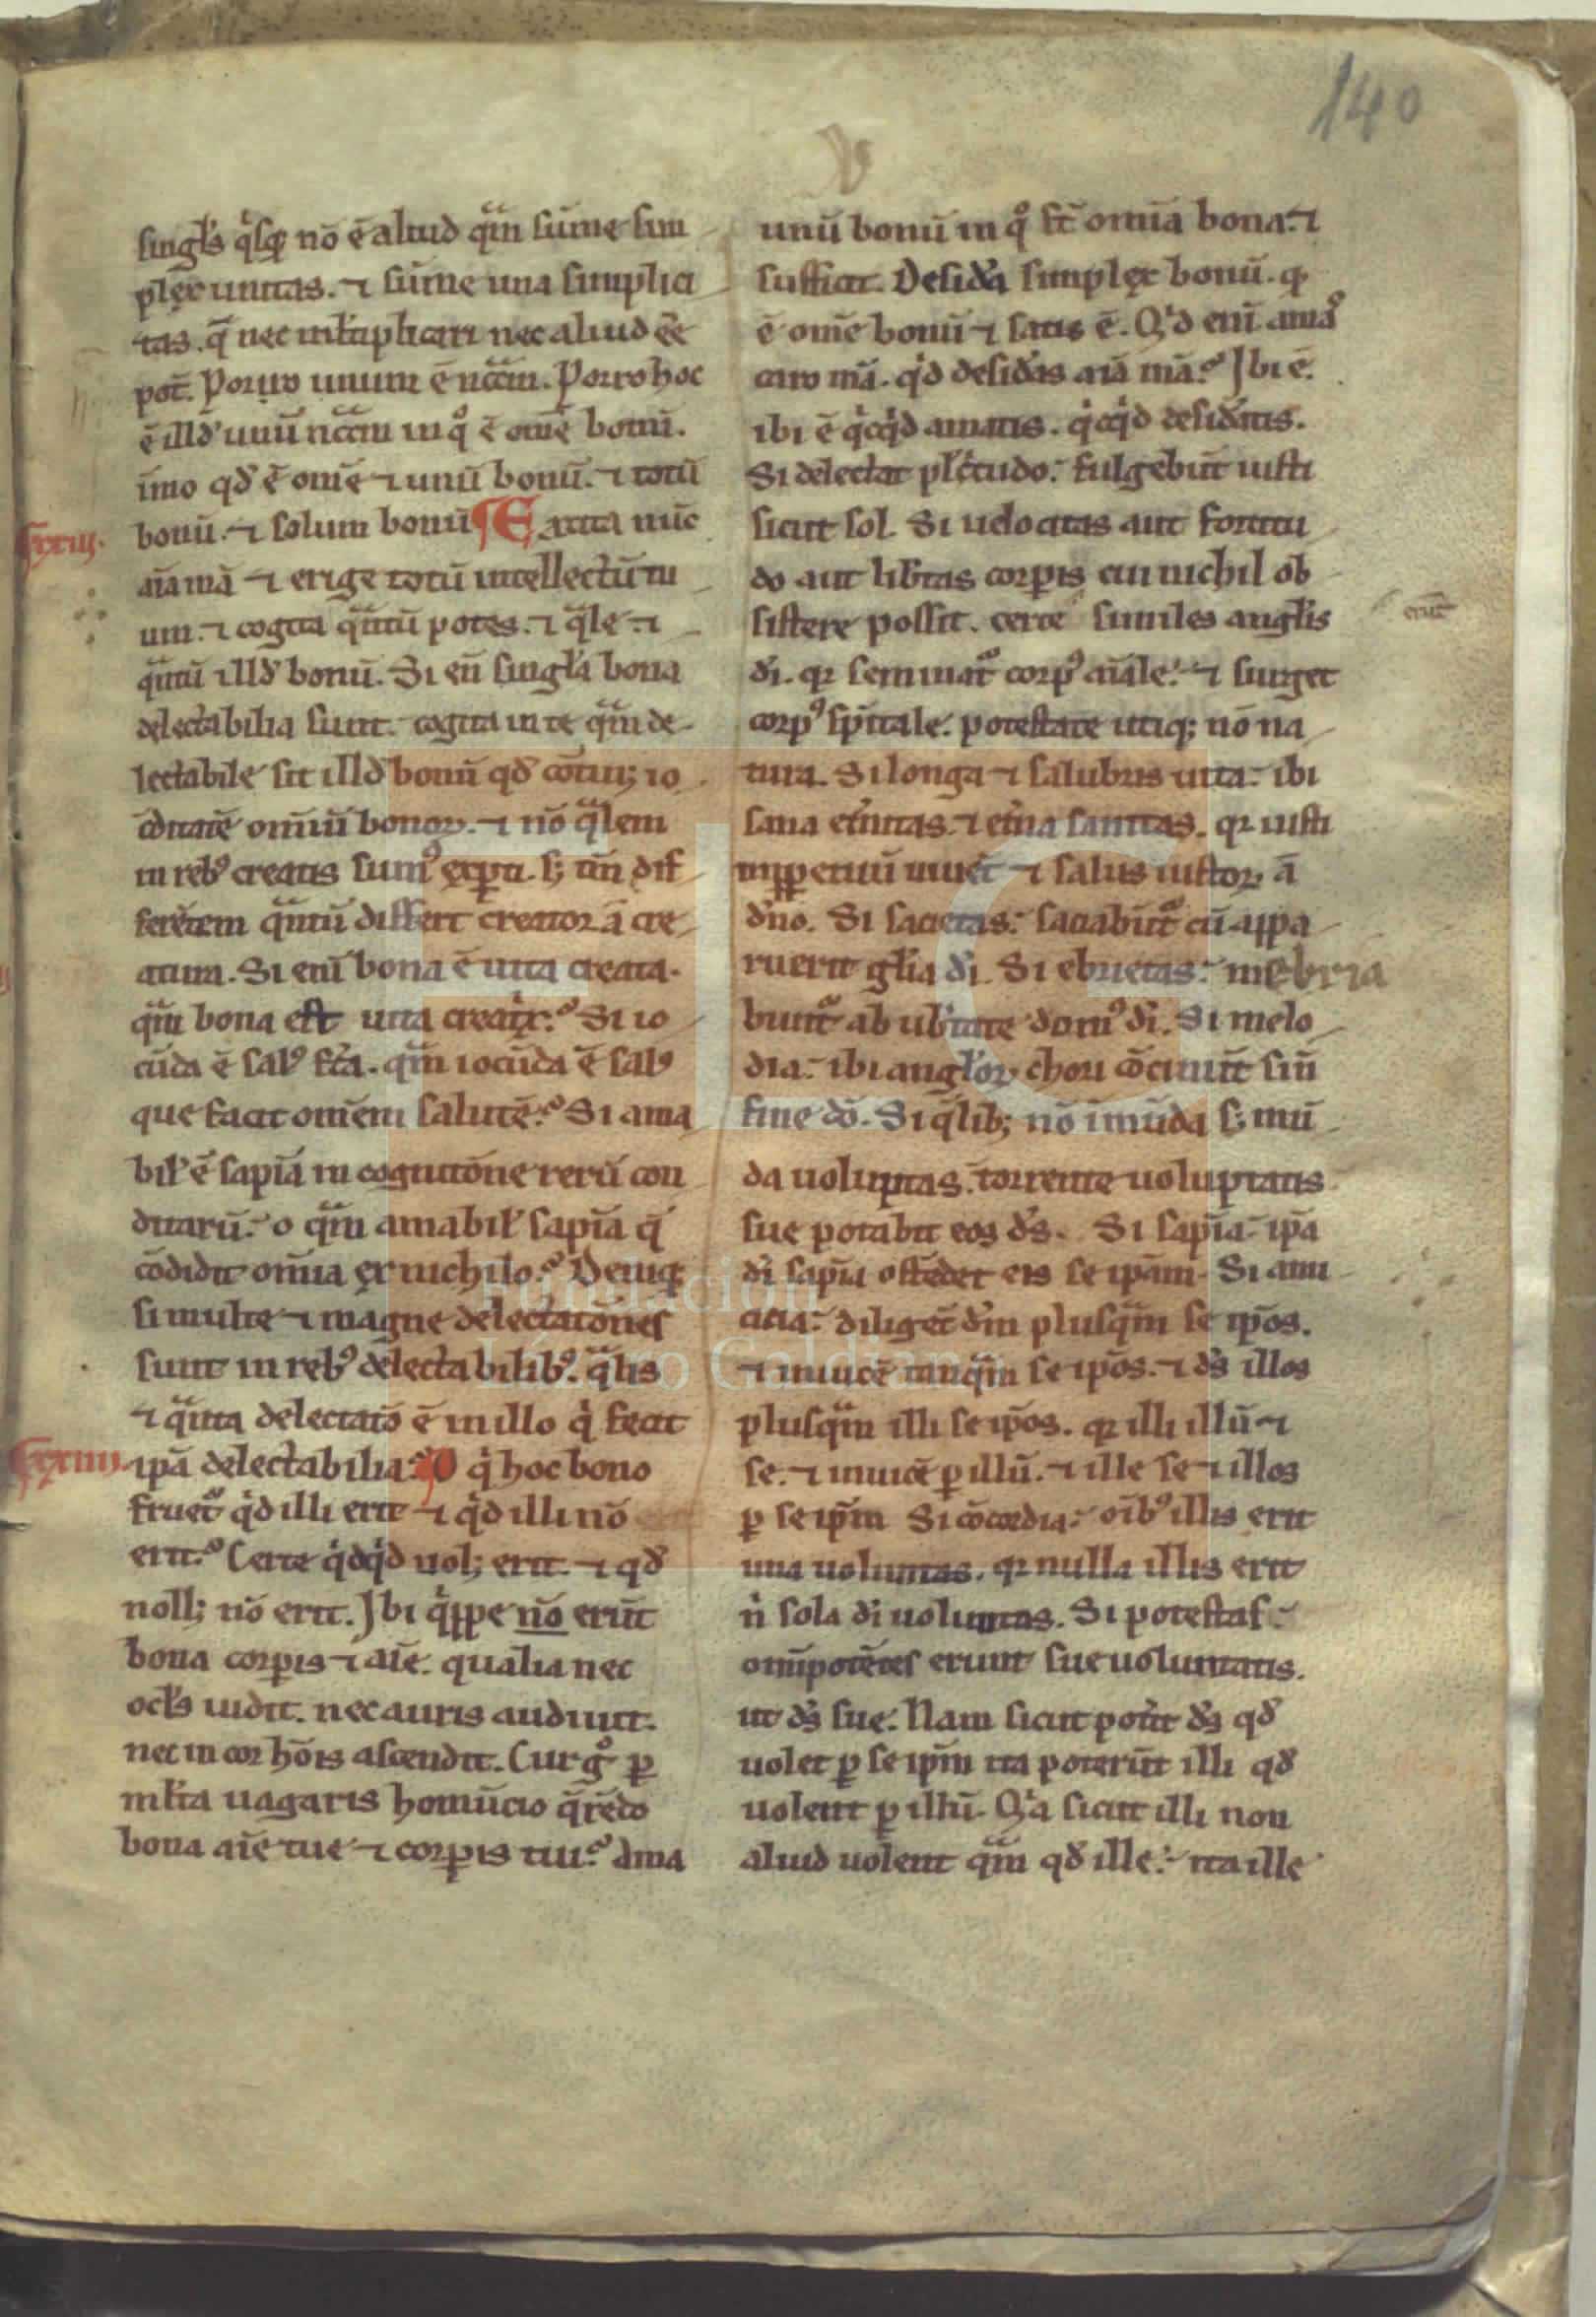 140
singl's q̇sq; nō ē aliud qᵃm sūme sim
plex unitas. ⁊ sūme una simplici
tas. q̄ nec ml'tiplicari nec aliud eē
pot̄. Porro unum ē nc̄c̄m. Porro hoc
ē illđ unū nc̄c̄m in qͦ ē om̄e bonū.
īmo qđ ē om̄e ⁊ unū bonū. ⁊ totū
bonū. ⁊ solum bonū Excita nūc
xxiii.
aīa mā ⁊ erige totū intellectū tu
um. ⁊ cogita qᵃntū potes. ⁊ qᵃle ⁊
qᵃntū illđ bonū. Si en̄ singl'a bona
delectabilia sunt. cogita intente qᵃm de
lectabile sit illđ bonū qđ cōtin; io
cūditatē om̄iū bonoꝝ. ⁊ nō qᵃlem
in reb; creatis sumꝰ exꝑti. s; tm̄ dif
ferētem qᵃntū differt creator ā cre
atura. Si enī bona ē uita creata.
qᵃm bona est uita creatⁱx? Si io
cūda ē salꝰ fc̄a. qᵃm iocūda ē salꝰ
que facit om̄em salutē? Si ama
bil' ē sapīa in cognitōne rerū con
ditarū. o qᵃm amabil' sapīa q̄
cōdidit om̄ia ex nichilo? Deniq;
si multe ⁊ magne delectatōnes
sunt in reb; delectabilib;. qᵃlis
⁊ qᵃnta delectatō ē in illo qⁱ fecit
xxiiii.
ipā delectabilia? O qⁱ hoc bono
fruet̄ qⁱd illi erit ⁊ qⁱd illi nō
erit? Certe qⁱdqⁱd uol; erit. ⁊ qđ
noll; nō erit. Ibi qⁱppe nō erūt
bona corꝑis ⁊ aīe. qualia nec
ocl's uidit. nec auris audiuit.
nec in cor hōis ascendit. Cur gͦ ꝑ
ml'ta uagaris homūcio q̄rēdo
bona aīe tue ⁊ corꝑis tui? Ama
unū bonū in qͦ st̄ om̄ia bona. ⁊
sufficit. Desid'a simplex bonū. qͥ
ē om̄e bonū ⁊ satis ē. Qⁱd enī amas
caro mā. qⁱd desid'as aīa mā? Ibi ē.
ibi ē qⁱcqⁱd amatis. qⁱcqⁱd desid'atis.
Si delectat plc̄ritudo. fulgebūt iusti
sicut sol. Si uelocitas aut fortitu
do aut lib'tas corꝑis cui nichil ob
sistere possit. certe similes angl'is
erūt
đi. qr seminat̄ corpꝰ aīale. ⁊ surget
corpꝰ spīritale. potestate utiq; nō na
tura. Si longa ⁊ salubris uita. ibi
sana et'nitas. ⁊ et'na sanitas. qr iusti
inꝑpetuū uiuēt ⁊ salus iustoꝝ ā
đno. Si sacietas. saciabūt̄ cū appa
ruerit gl'ia đi. Si ebrietas. inebria
bunt̄ ab ub'tate domꝰ đi. Si melo
dia. ibi angl'oꝝ chori cōcinūt sin̄
fine dō. Si qᵃlib; nō īmūda s; mū
da uoluptas. torrente uoluptatis
sue potabit eos đs. Si sapīa. ipā
đi sapīa ostēdet eis se ipām. Si ami
citia. diligēt đm plusqᵃm se ipōs.
⁊ inuicē tanqᵃm se ipōs. ⁊ đs illos
plusqᵃm illi se ipōs. qr illi illū ⁊
se. ⁊ inuicē ꝑ illū. ⁊ ille se ⁊ illos
ꝑ se ipm̄ Si cōcordia. oīb; illis erit
una uoluntas. qr nulla illis erit
nⁱ sola đi uoluntas. Si potestas.
omīpotētes erunt sue uoluntatis.
ut đs sue. Nam sicut pot'it đs qđ
uolet ꝑ se ipm̄ ita poterūt illi qđ
uolent ꝑ illū. Qⁱa sicut illi non
aliud uolent qᵃm qđ ille. ita ille
Fundación
Lázaro Galdiano